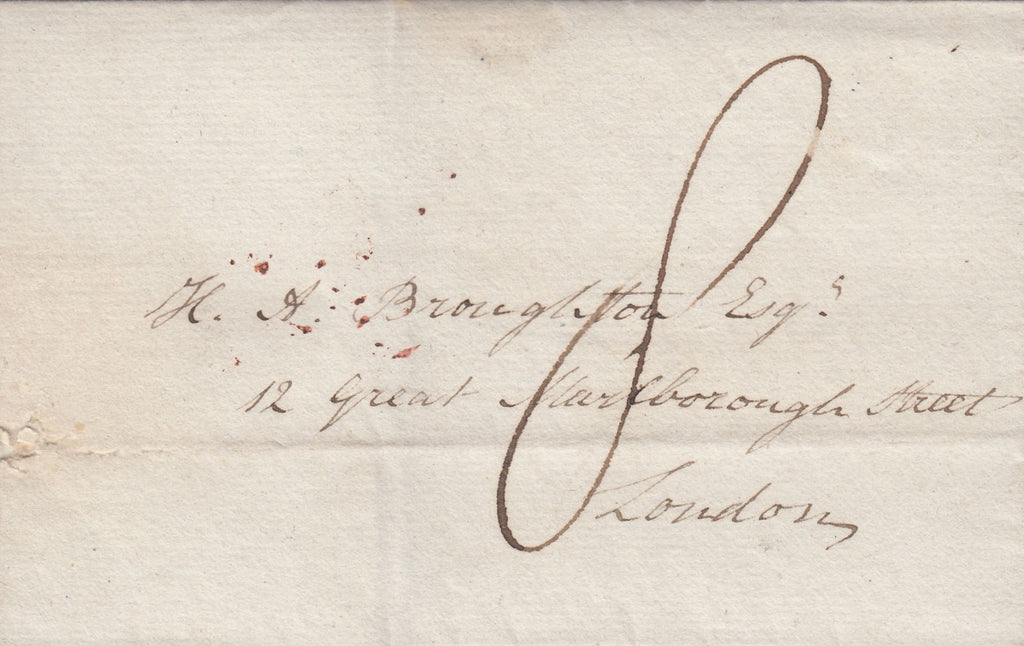 H. A. Broughton Esqr.
12 Great Marlborough Street
London
8